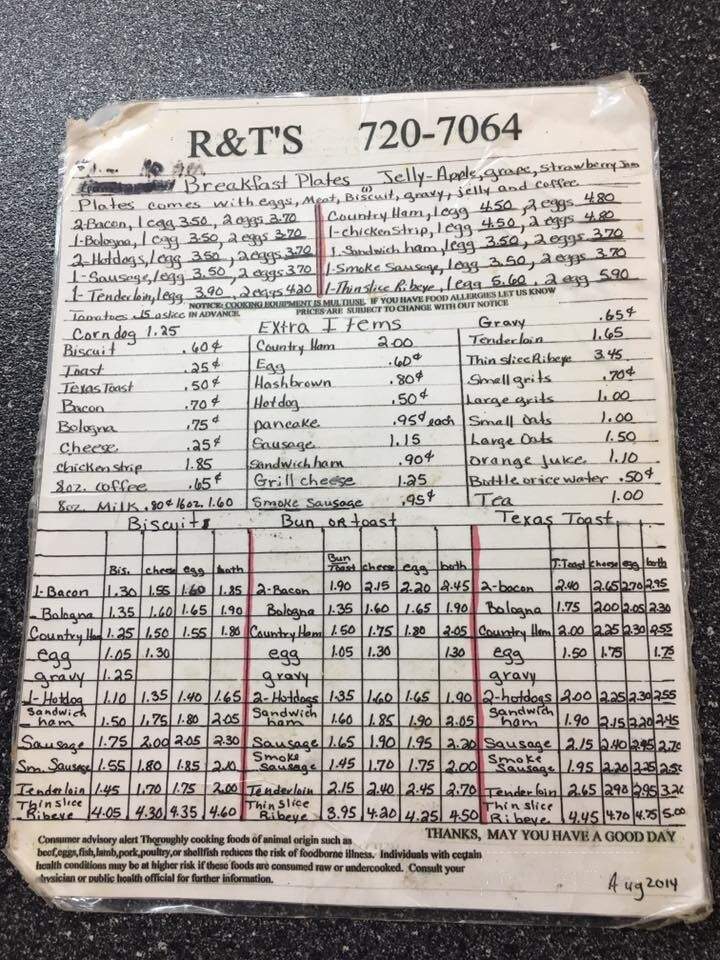 R&T'S 720-7064
Breakfast Plates Jelly-Apple, grape, strawberry Jam
Plates comes with eggs, Meat, Biscuit, (1) gravy, jelly and coffee
2-Bacon, 1 egg 3.50, 2 eggs 3.70 Country Ham, 1 egg 4.50, 2 eggs 4.80
1-Bologna, 1 egg 3.50, 2 eggs 3.70 1-chicken strip, 1 egg 4.50, 2 eggs 4.80
2-Hotdogs, 1 egg 3.50, 2 eggs 3.70 1-Sandwich ham, 1 egg 3.50, 2 eggs 3.70
1-Sausage, 1 egg 3.50, 2 eggs 3.70 1-Smoke Sausage, 1 egg 3.50, 2 eggs 3.70
1-Tenderloin, 1 egg 3.90, 2 eggs 4.20 1-Thin slice Ribeye, 1 egg 5.60, 2 egg 5.90
NOTICE: COOKING EQUIPMENT IS MULTIUSE IF YOU HAVE FOOD ALLERGIES LET US KNOW
Tomatoes .15 a slice IN ADVANCE PRICES ARE SUBJECT TO CHANGE WITH OUT NOTICE
Corndog 1.25 Extra Items Gravy .65¢
Biscuit .60¢ Country Ham 2.00 Tenderloin 1.65
Toast .25¢ Egg .60¢ Thin slice Ribeye 3.45
Texas Toast .50¢ Hashbrown .80¢ Small grits .70¢
Bacon .70¢ Hotdog .50¢ Large grits 1.00
Bologna .75¢ pancake .95¢ each Small Oats 1.00
Cheese .25¢ Sausage 1.15 Large Oats 1.50
Chicken strip 1.85 Sandwich ham .90¢ Orange Juice 1.10
8oz. Coffee .65¢ Grill cheese 1.25 Bottle or ice water .50¢
8oz. Milk .80¢ 16oz. 1.60 Smoke Sausage .95¢ Tea 1.00
Biscuits Bun or toast Texas Toast
Bis. cheese egg both Bun Toast cheese egg both T.Toast cheese egg both
1-Bacon 1.30 1.55 1.60 1.85 2-Bacon 1.90 2.15 2.20 2.45 2-bacon 2.40 2.65 2.70 2.95
Bologna 1.35 1.60 1.65 1.90 Bologna 1.35 1.60 1.65 1.90 Bologna 1.75 2.00 2.05 2.30
Country Ham 1.25 1.50 1.55 1.80 Country Ham 1.50 1.75 1.80 2.05 Country Ham 2.00 2.25 2.30 2.55
egg 1.05 1.30 egg 1.05 1.30 1.30 egg 1.50 1.75 1.75
gravy 1.25 gravy gravy
1-Hotdog 1.10 1.35 1.40 1.65 2-Hotdogs 1.35 1.60 1.65 1.90 2-hotdogs 2.00 2.25 2.30 2.55
Sandwich ham 1.50 1.75 1.80 2.05 Sandwich ham 1.60 1.85 1.90 2.05 Sandwich ham 1.90 2.15 2.20 2.45
Sausage 1.75 2.00 2.05 2.30 Sausage 1.65 1.90 1.95 2.20 Sausage 2.15 2.40 2.45 2.70
Sm. Sausage 1.55 1.80 1.85 2.10 Smoke Sausage 1.45 1.70 1.75 2.00 Smoke Sausage 1.95 2.20 2.25 2.50
Tenderloin 1.45 1.70 1.75 2.00 Tenderloin 2.15 2.40 2.45 2.70 Tenderloin 2.65 2.90 2.95 3.20
Thin slice Ribeye 4.05 4.30 4.35 4.60 Thin slice Ribeye 3.95 4.20 4.25 4.50 Thin slice Ribeye 4.45 4.70 4.75 5.00
THANKS, MAY YOU HAVE A GOOD DAY
Consumer advisory alert Thoroughly cooking foods of animal origin such as
beef,eggs,fish,lamb,pork,poultry,or shellfish reduces the risk of foodborne illness. Individuals with certain
health conditions may be at higher risk if these foods are consumed raw or undercooked. Consult your
physician or public health official for further information.
Aug 2014